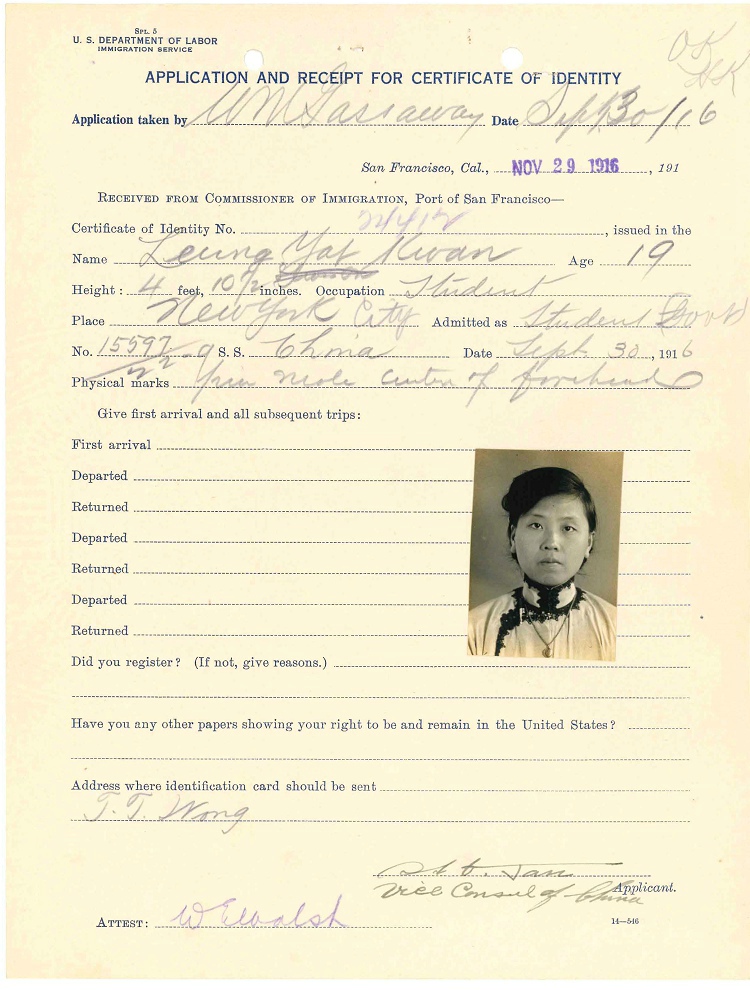 SPL. 5
U. S. DEPARTMENT OF LABOR
IMMIGRATION SERVICE
OK
APPLICATION AND RECEIPT FOR CERTIFICATE OF IDENTITY
Application taken by W M Gassaway Date Sept 30/16
San Francisco, Cal., NOV 29 1916, 191
RECEIVED FROM COMMISSIONER OF IMMIGRATION, Port of San Francisco—
Certificate of Identity No. 24412, issued in the
Name Leung Yat Kwan Age 19
Height: 4 feet, 10½ inches. Occupation Student
Place New York City Admitted as Student
No. 15597 S. S. China Date Sept. 30, 1916
Physical marks pin mole center of forehead
Give first arrival and all subsequent trips:
First arrival
Departed
Returned
Departed
Returned
Departed
Returned
Did you register? (If not, give reasons.)
Have you any other papers showing your right to be and remain in the United States?
Address where identification card should be sent
T. T. Wong
Vice Consul of China
Applicant.
ATTEST: W E Walsh
14—546